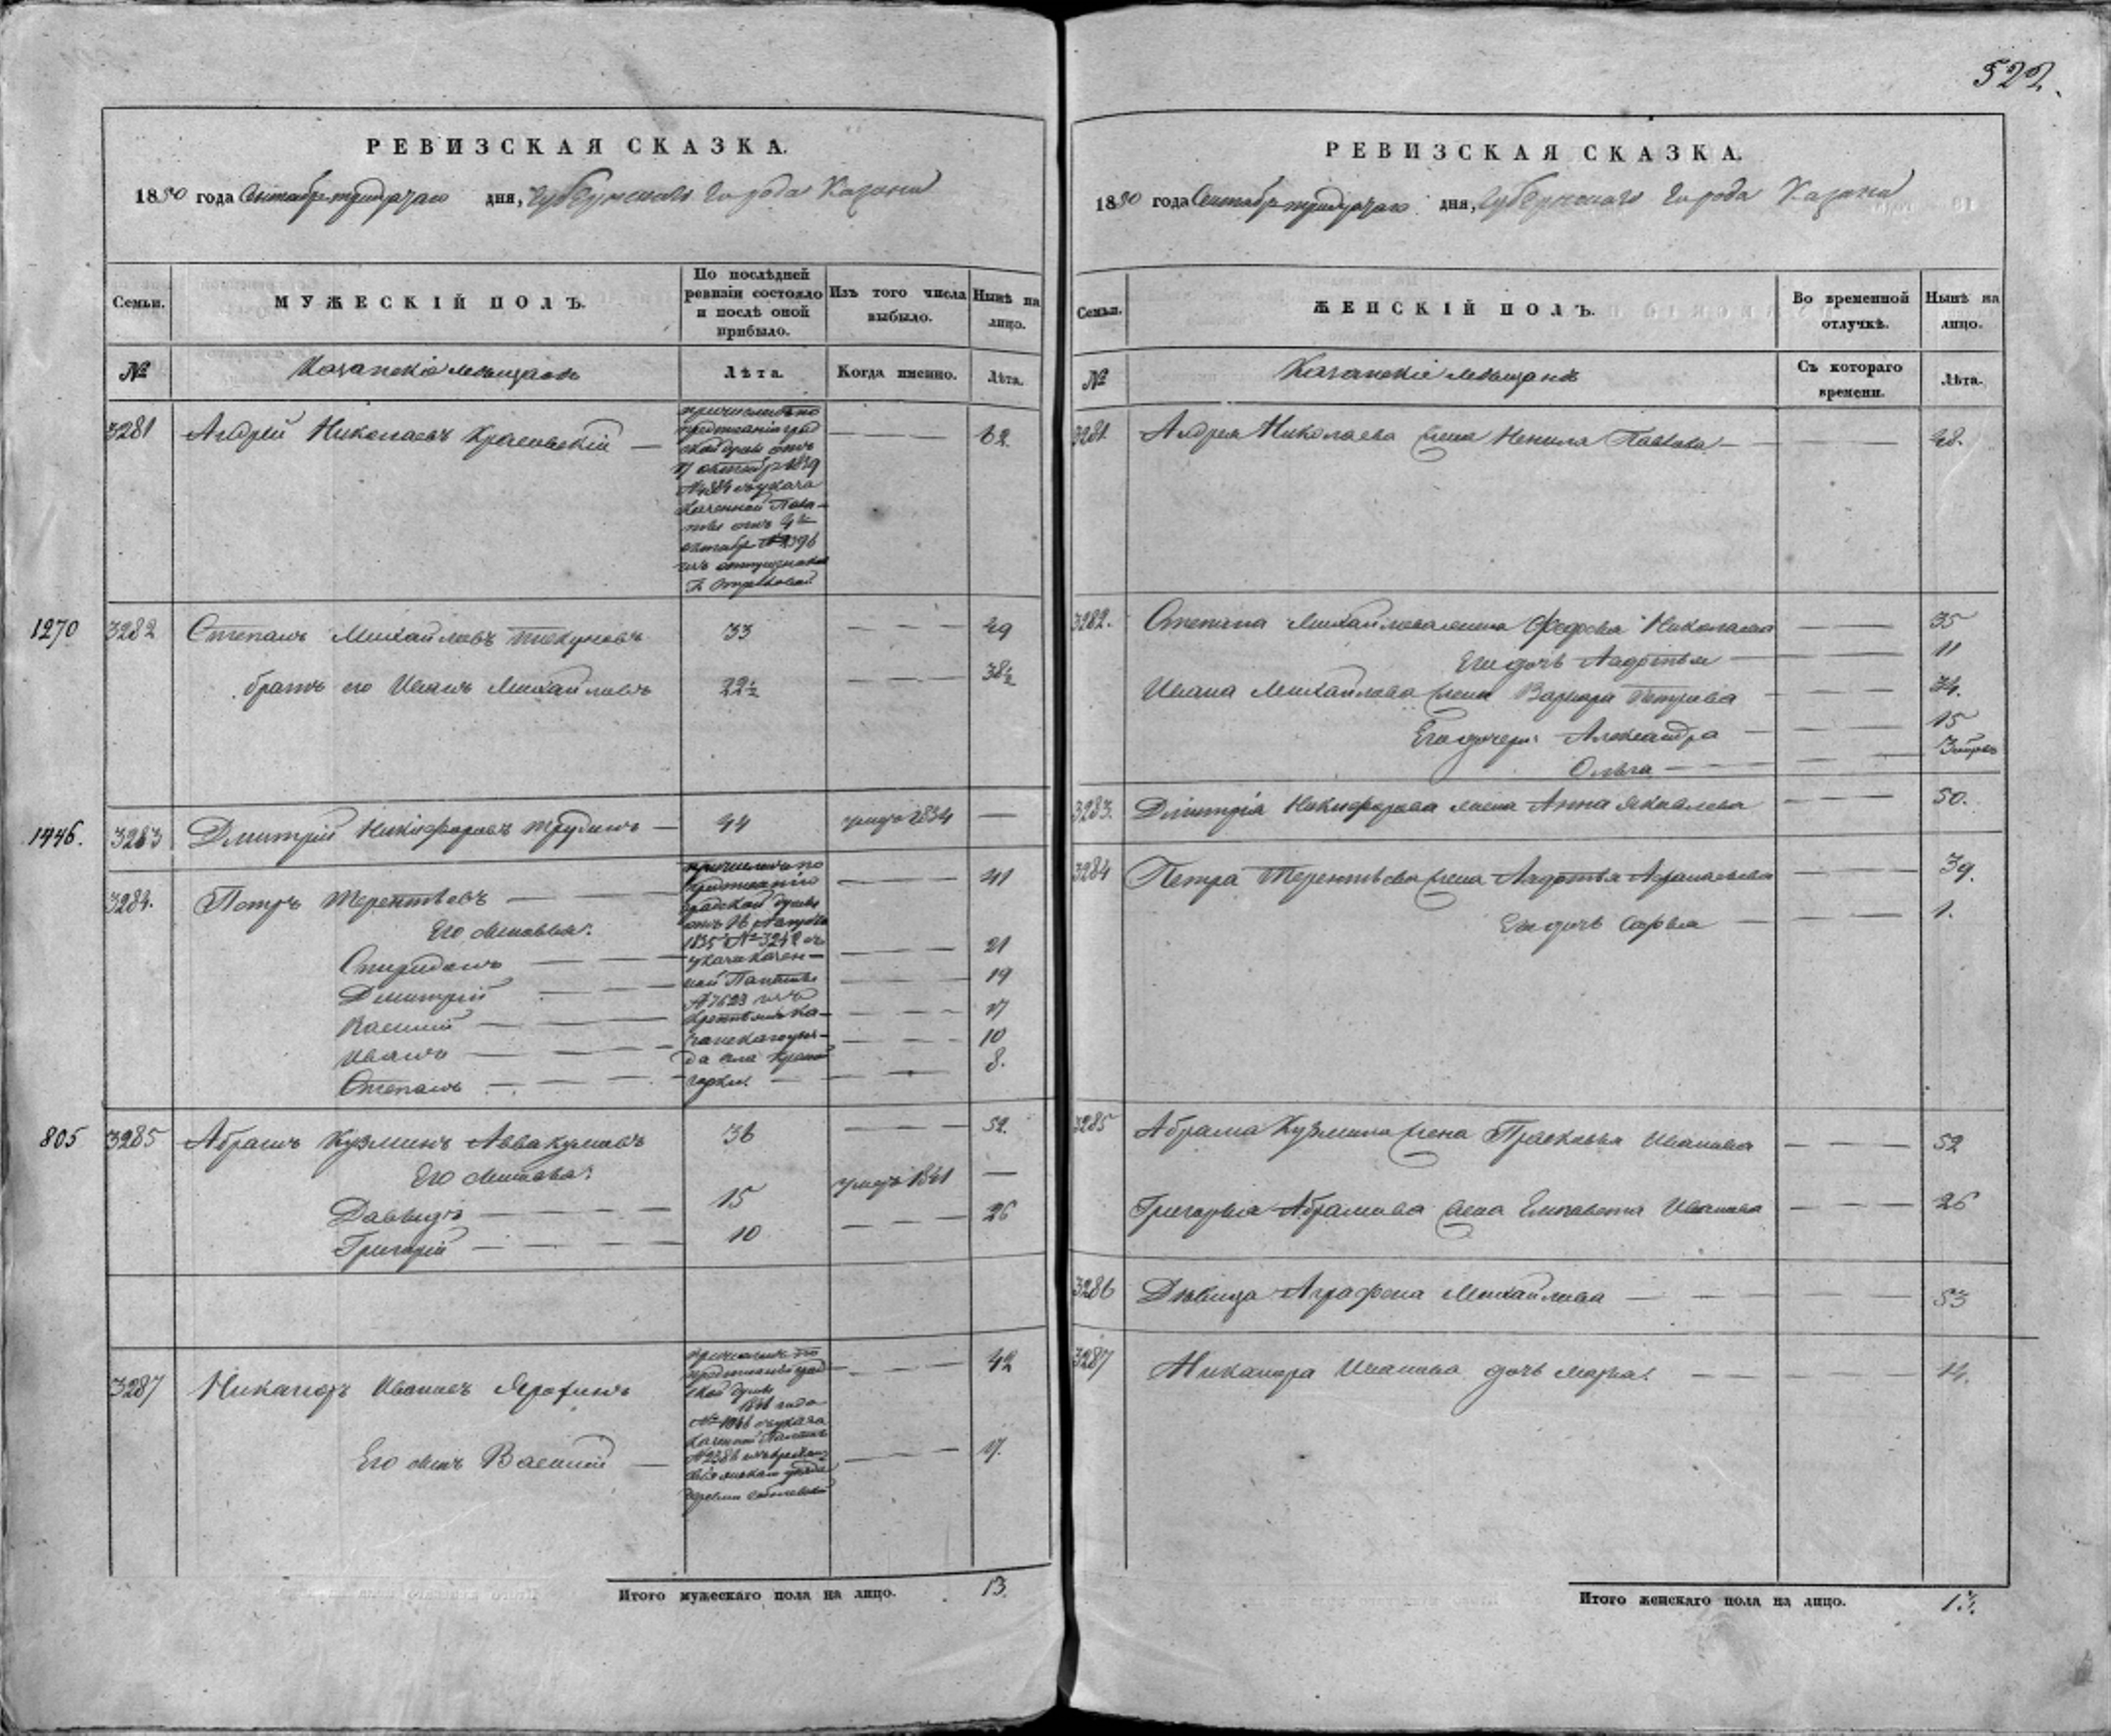 522.
РЕВИЗСКАЯ СКАЗКА.
1850 года Сентября тридцатаго дня, Губернскаго города Казани
Семьи. МУЖЕСКІЙ ПОЛЪ. По послѣдней ревизіи состояло и послѣ оной прибыло. Изъ того числа выбыло. Нынѣ на лицо.
№ Казанскіе мѣщане Лѣта. Когда именно. Лѣта.
3281 Андрей Николаевъ Красовскій — 62.
причисленъ по
предписанію град
ской думы отъ
17 октября 1839
№ 4384 съ указа
Казенной Пала-
ты отъ 9го
октября
изъ отпущенныхъ
1270 3282 Степанъ Михайловъ 33 49
братъ его Иванъ Михайловъ 22½ 38½
1446. 3283 Дмитрій Никифоровъ Трудинъ — 44 умеръ 1834 —
3284. Петръ Терентьевъ — 41
Его сыновья:
Спиридонъ — 21
Дмитрій — 19
Василій — 17
Иванъ — 10
Степанъ — 8.
причисленъ по
предписанію
градской думы
отъ 16 Августа
1835 № 3242 съ
указа Казен-
ной Палаты
№ 7623 изъ
крестьянъ Ка-
занскаго уѣз-
да села
горки.
805 3285 Абрамъ Кузминъ Аввакумовъ 36 52.
Его сыновья:
Давыдъ — 15 умеръ 1841 —
Григорій — 10 26
3287 Никаноръ Ивановъ 42
Его сынъ Василій — 17.
причисленъ по
предписанію град
ской думы
года
съ указа
Казенной Палаты
деревни
Итого мужескаго пола на лицо. 13.
РЕВИЗСКАЯ СКАЗКА.
1850 года Сентября тридцатаго дня, Губернскаго города Казани
Семьи. ЖЕНСКІЙ ПОЛЪ. Во временной отлучкѣ. Нынѣ на лицо.
№ Казанскіе мѣщане Съ котораго времени. Лѣта.
3281. Андрея Николаева жена Ненила Павлова — 48.
3282. Степана Михайлова жена Федосья Николаева 35
Его дочь Авдотья — 11
Ивана Михайлова жена Варвара Петрова 34.
Его дочери: Александра — 15
Ольга —
3283. Дмитрія Никифорова жена Анна Яковлева 50.
3284 Петра Терентьева жена Авдотья Афанасьева 39.
Его дочь Софья — 1.
3285 Абрама Кузмина жена Прасковья Иванова 52
Григорья Абрамова жена Елизавета Иванова 26
3286 Дѣвица Аграфена Михайлова — 53
3287 Никанора Иванова дочь Марья. 14.
Итого женскаго пола на лицо. 13.